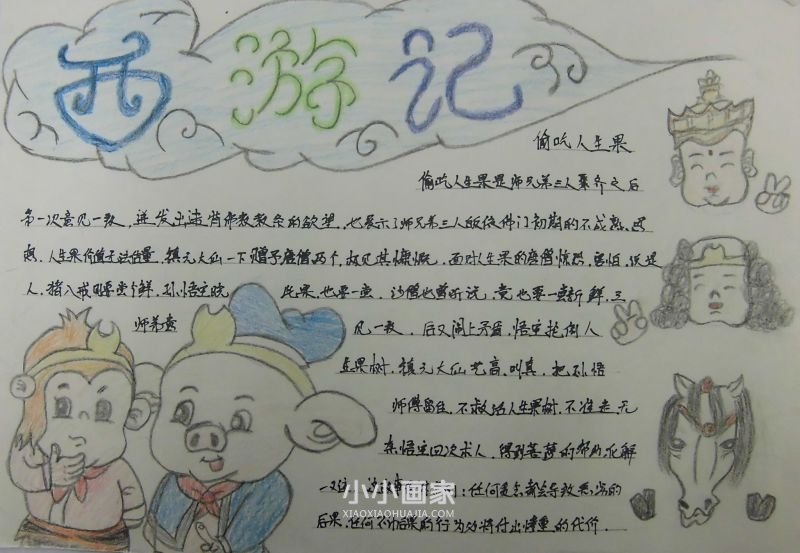 西游记
偷吃人生果
偷吃人生果是师兄弟三人聚齐之后
第一次意见一致,迸发出违背佛教教条的欲望,也展示了师兄弟三人皈依佛门初期的不成熟
人生果价值无法估量,镇元大仙一下赠予唐僧两个,足见其慷慨,面对人生果的唐僧惊恐,害怕,误是
人,猪八戒要尝个鲜,孙悟空说 此果,也要一尝,沙僧也曾听说,竟也要一尝新鲜,三
师弟意 见一致,后又闹上矛盾,悟空推倒人
生果树,镇元大仙艺高,叫真,把孙悟
师傅留住,不救活人生果树,不准走,无
奈悟空四次求人,得到菩萨的帮助,化解
:任何贪念都会导致恶劣的
后果,任何不计后果的行为必将付出惨重的代价.
小小画家
XIAOXIAOHUAJIA.COM